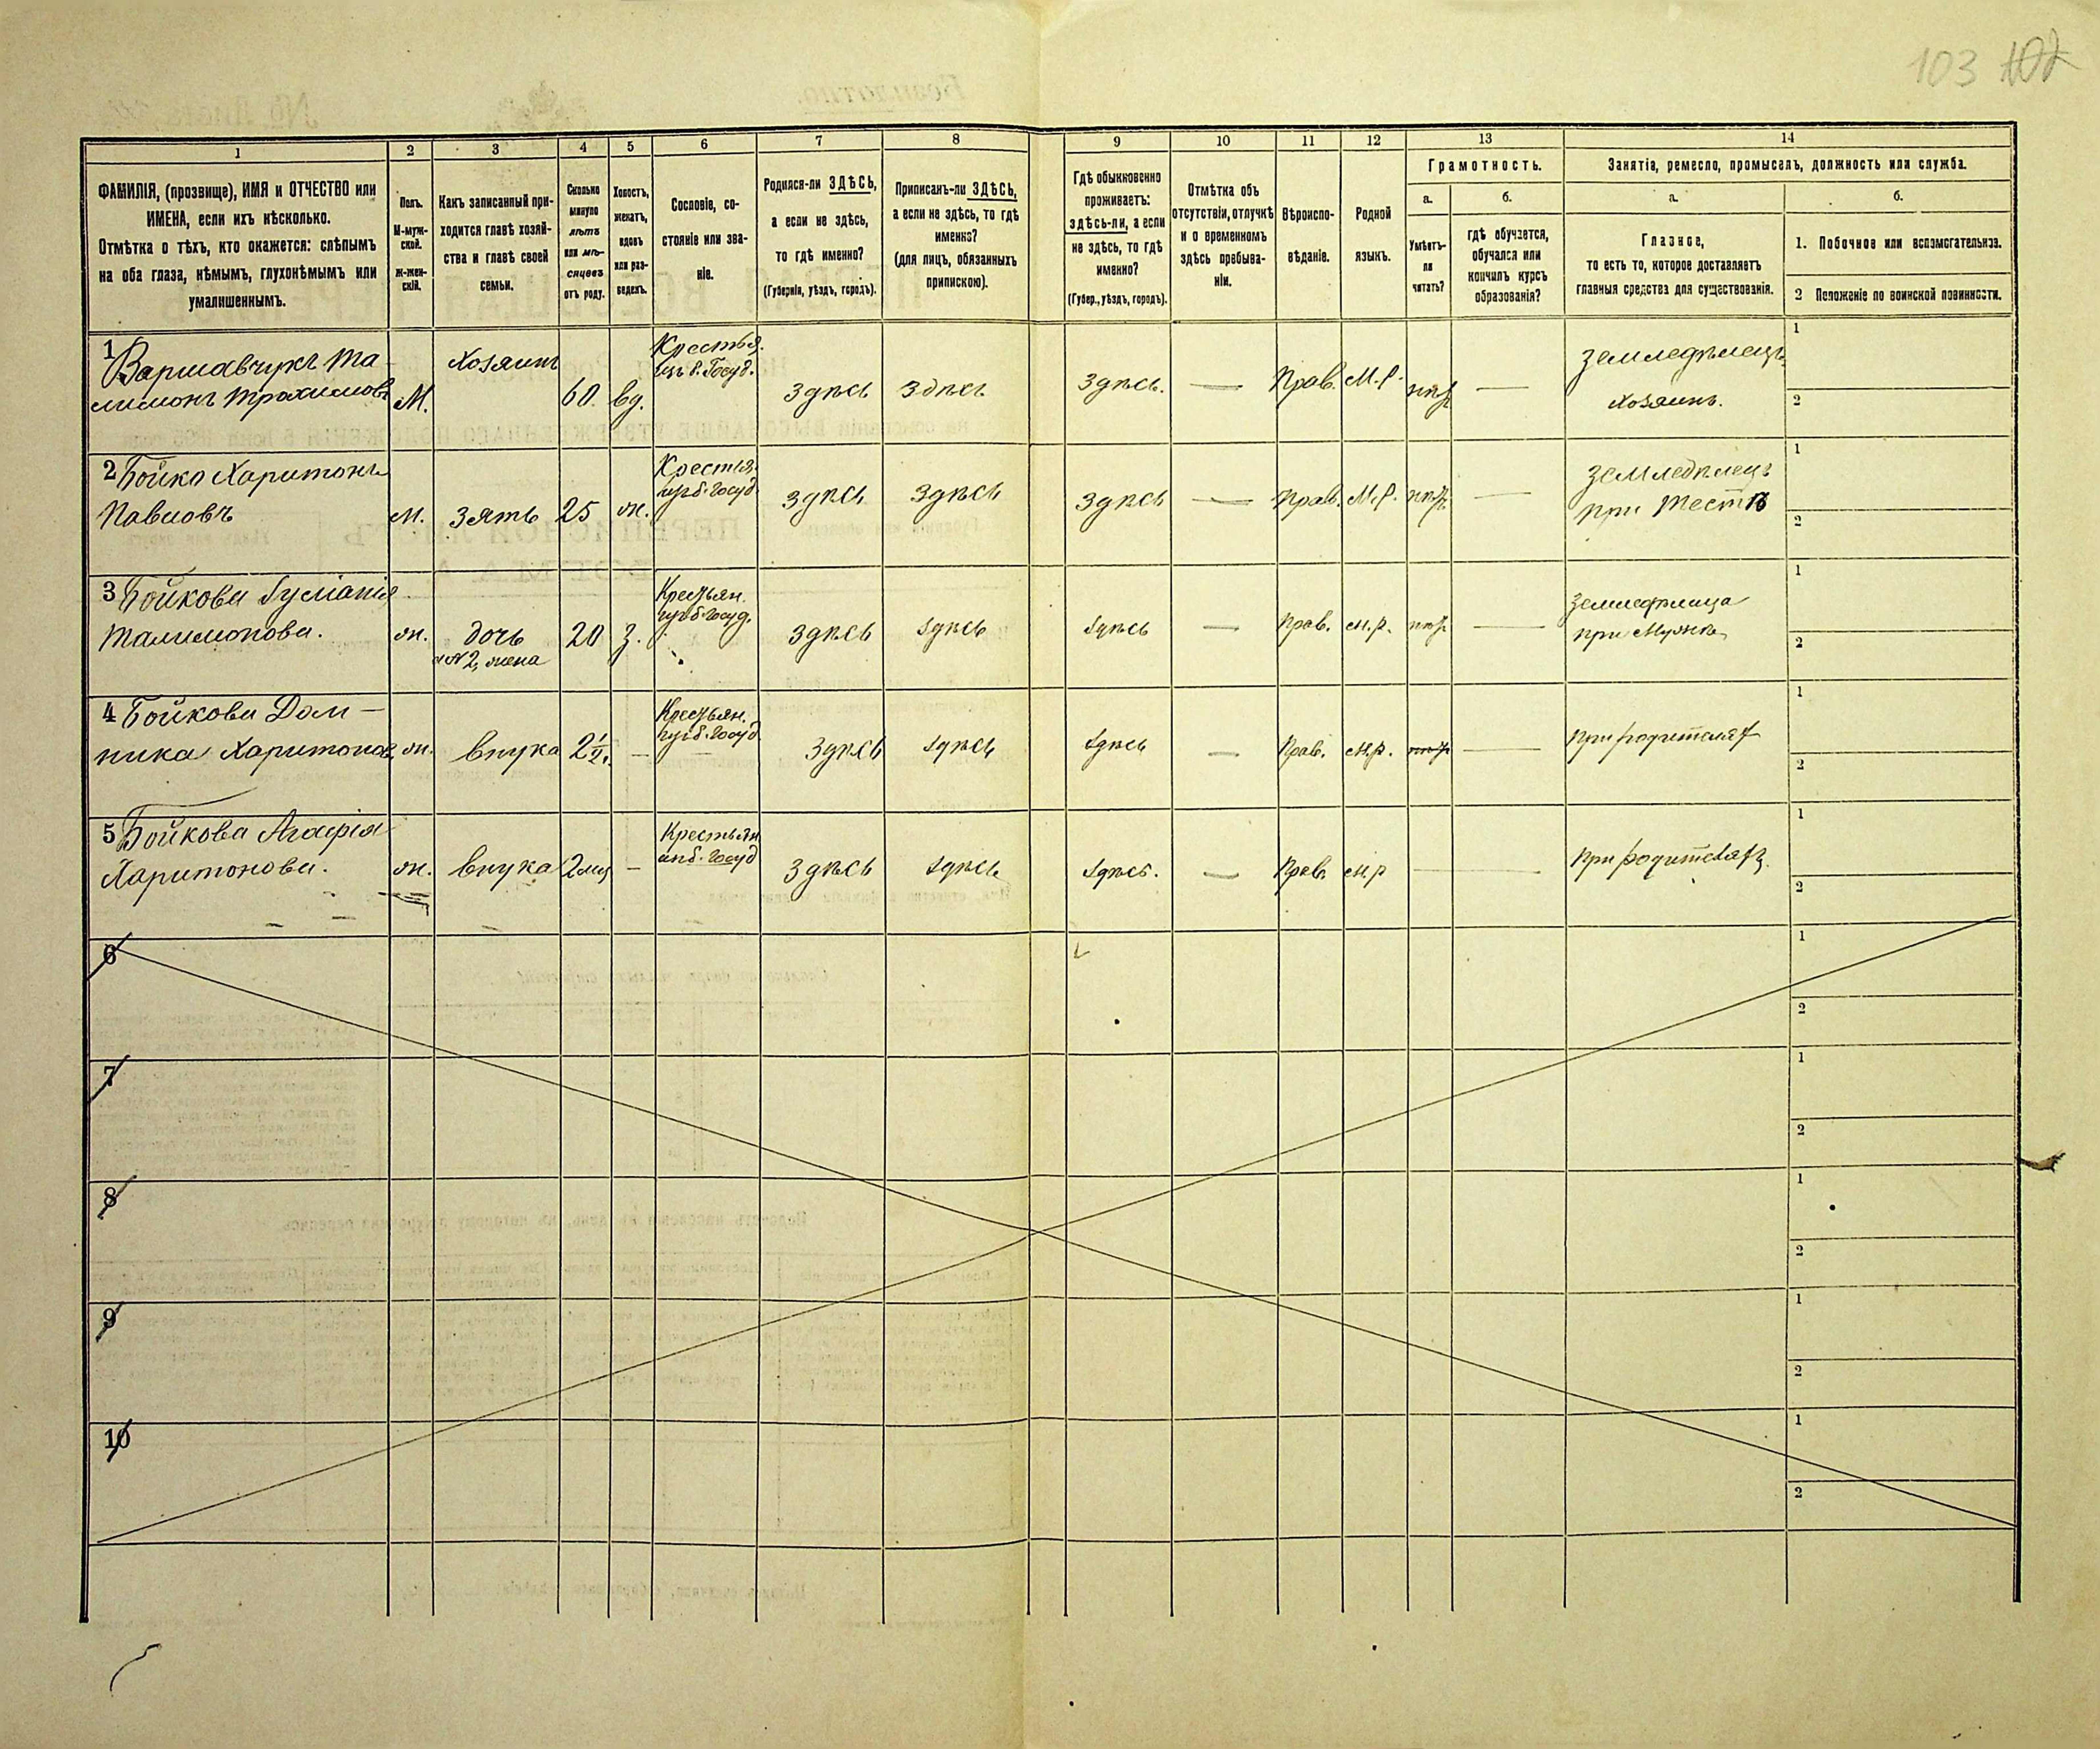 103 102
1
2
3
4
5
6
7
8
9
10
11
12
13
14
ФАМИЛІЯ, (прозвище), ИМЯ и ОТЧЕСТВО или
ИМЕНА, если ихъ нѣсколько.
Отмѣтка о тѣхъ, кто окажется: слѣпымъ
на оба глаза, нѣмымъ, глухонѣмымъ или
умалишеннымъ.
Полъ.
М-муж-
ской.
Ж-жен-
скій.
Какъ записанный при-
ходится главѣ хозяй-
ства и главѣ своей
семьи.
Сколько
минуло
лѣтъ
или мѣ-
сяцевъ
отъ роду.
Холостъ,
женатъ,
вдовъ
или раз-
веденъ.
Сословіе, со-
стояніе или зва-
ніе.
Родился-ли ЗДѢСЬ,
а если не здѣсь,
то гдѣ именно?
(Губернія, уѣздъ, городъ).
Приписанъ-ли ЗДѢСЬ,
а если не здѣсь, то гдѣ
именно?
(для лицъ, обязанныхъ
припискою).
Гдѣ обыкновенно
проживаетъ:
здѣсь-ли, а если
не здѣсь, то гдѣ
именно?
(Губер., уѣздъ, городъ).
Отмѣтка объ
отсутствіи, отлучкѣ
и о временномъ
здѣсь пребыва-
ніи.
Вѣроиспо-
вѣданіе.
Родной
языкъ.
Грамотность.
а.
Умѣетъ-
ли
читать?
б.
гдѣ обучается,
обучался или
кончилъ курсъ
образованія?
Занятія, ремесло, промыселъ, должность или служба.
а.
Главное,
то есть то, которое доставляетъ
главныя средства для существованія.
б.
1. Побочное или вспомогательное.
2 Положеніе по воинской повинности.
1 Варшавчукъ Та-
лимонъ Трохимовъ
М.
Хозяинъ
60
вд.
Крестья.
изъ б. Госуд.
Здѣсь
Здѣсь
Здѣсь.
—
Прав.
М.-р.
—
Земледѣлецъ
Хозяинъ.
1
2
2 Бойко Харитонъ
Павловъ
М.
Зять
25
ж.
Крестья.
изъ б. госуд
Здѣсь
Здѣсь
Здѣсь
—
Прав.
М.р.
—
Земледѣлецъ
при Тестѣ
1
2
3 Бойкова
Талимонова.
ж.
дочь
а № 2, жена
20
З.
Крестьян.
изъ б. госуд.
Здѣсь
Здѣсь
Здѣсь
—
Прав.
м.р.
—
при Мужѣ
1
2
4 Бойкова Дом-
ника Харитонов.
ж.
внука
2½
—
Крестьян.
изъ б. госуд
Здѣсь
Здѣсь
Здѣсь
—
Прав.
м.р.
—
при родителях
1
2
5 Бойкова Агафія
Харитонова.
ж.
внука
2 мц
—
Крестьян
изъ б. госуд
Здѣсь
Здѣсь
Здѣсь.
—
Прав.
м.р
—
При родителяхъ.
1
2
6
1
2
7
1
2
8
1
2
9
1
2
10
1
2